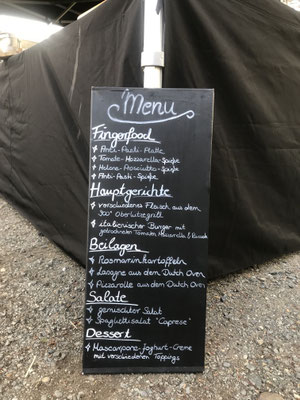 Menu
Fingerfood
Anti-Pasti-Platte
Tomate-Mozzarella-Spieße
Melone-Prosciutto-Spieße
Anti-Pasti-Spieße
Hauptgerichte
verschiedenes Fleisch aus dem
800° Oberhitzegrill
italienische Burger mit
getrockneten Tomaten, Mozzarella & Rucola
Beilagen
Rosmarinkartoffeln
Lasagne aus dem Dutch Oven
aus dem Dutch Oven
Salate
gemischter Salat
Spaghettisalat "Caprese"
Dessert
Mascarpone-Joghurt-Creme
mit verschiedenen Toppings